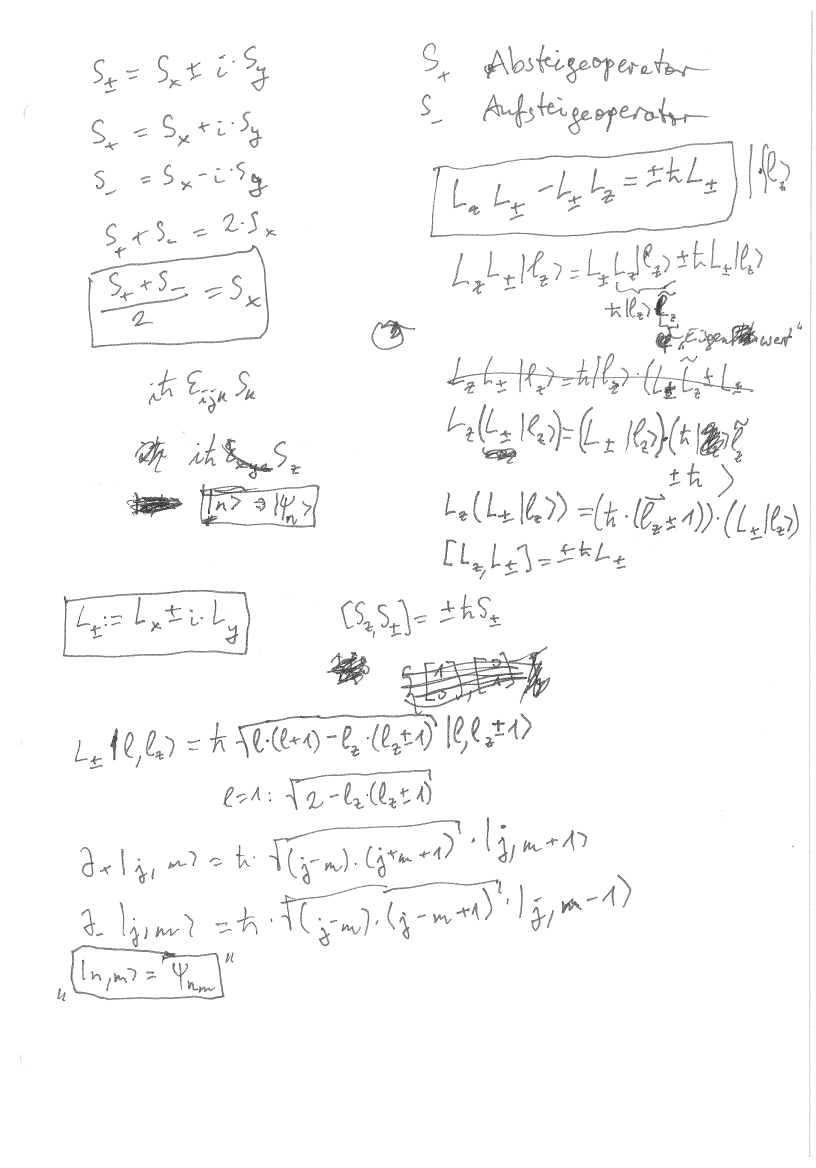 S± = Sx ± i·Sy
S+ = Sx + i·Sy
S- = Sx - i·Sy
S+ + S- = 2·Sx
(S+ + S-)/2 = Sx
iħ εijk Sk
iħ Sz
|n> → |ψn>
S+ Absteigeoperator
S- Aufsteigeoperator
Lz L± - L± Lz = ±ħ L± | ·|lz>
Lz L± |lz> = L± Lz |lz> ± ħ L± |lz>
ħ |lz> l̃z
"Eigenwert"
Lz L± |lz> = ħ|lz> · (L± L̃z ± L±
Lz(L± |lz>) = (L± |lz>)·(ħ l̃z
± ħ )
Lz(L± |lz>) = (ħ·(lz ± 1))·(L± |lz>)
[Lz, L±] = ±ħ L±
L± := Lx ± i·Ly
[Sz, S±] = ±ħ S±
L± |l, lz> = ħ √(l·(l+1) - lz·(lz ± 1)) |l, lz ± 1>
l=1: √(2 - lz·(lz ± 1))
J+ |j, m> = ħ·√((j-m)·(j+m+1)) · |j, m+1>
J- |j, m> = ħ·√((j-m)·(j-m+1)) · |j, m-1>
"|n,m> = ψnm"